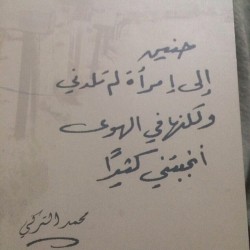 حنين
إلى إمرأة لم تلدني
ولكنها في الهوى
أنجبتني كثيرًا
محمد التركي